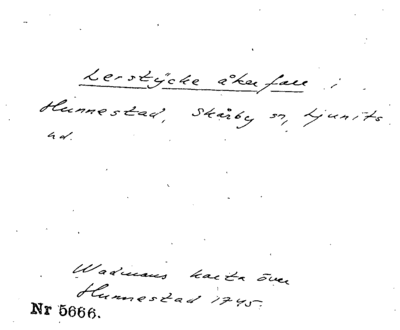 Lerstycke åker fall i
Hunnestad, Skårby sn, Ljunits
hd.
Wadmans karta över
Hunnestad 1745.
Nr 5666.